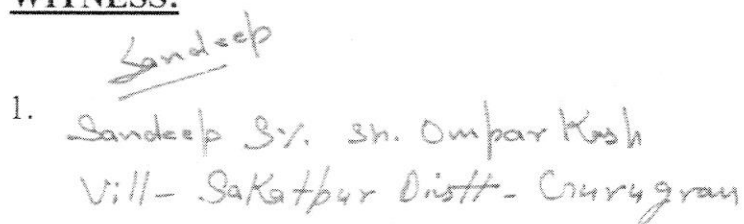 WITNESS:
Sandeep
1. Sandeep S/o. Sh. Omparkash
Vill- Sakatpur Distt- Gurugram